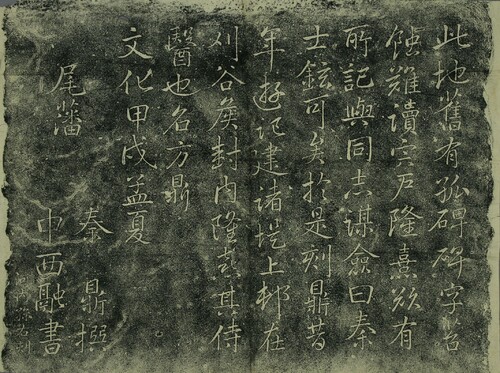 此地舊有孤碑碑字苔
蝕難讀宍戸隆熹欲有
所記與同志謀僉曰秦
士鉉可矣於是刻鼎昔
年遊記建諸堤上邨在
刈谷侯封内隆熹其侍
醫也名方鼎
文化甲戌孟夏
尾藩 秦 鼎撰
中西融書